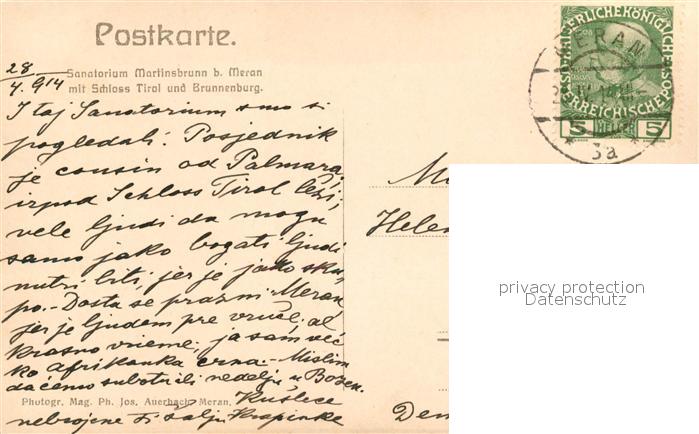 Postkarte.
28/4. 914
Sanatorium Martinsbrunn b. Meran
mit Schloss Tirol und Brunnenburg.
I taj Sanatorium smo si
pogledali. Posjednik
je cousin od Palmaya,
izpod Schloss Tirol leži,
vele ljudi da mogu
samo jako bogati ljudi
nutri liti, jer je jako sku-
po. - Dosta se prazni Meran
jer je ljudem pre vruče, al
krasno vrieme, ja sam već
ko afrikanka crna. - Mislim
da ćemo subotu ili nedelju u Bozen.
Kušlece
nebrojene Ti šalju Krapinke
Photogr. Mag. Ph. Jos. Auerbach Meran.
MERAN
3a
KAISERLICHE KÖNIGLICHE
ÖSTERREICHISCHE POST
5 HELLER 5
Helen
privacy protection
Datenschutz